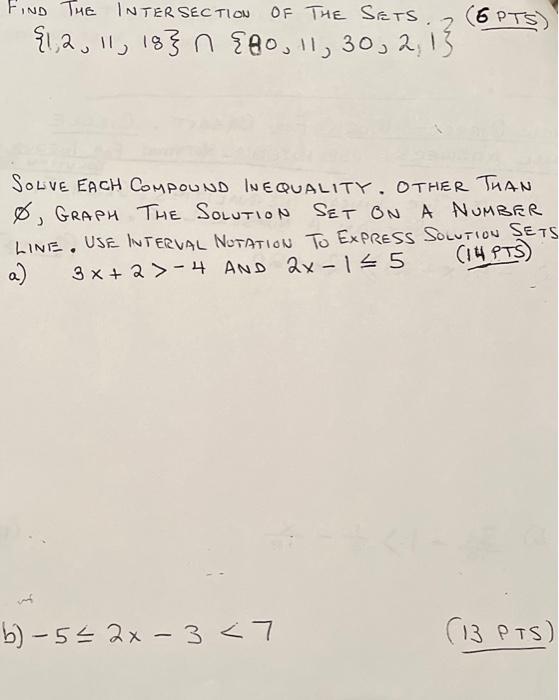 FIND THE INTERSECTION OF THE SETS. (6 PTS)
{1,2, 11, 18} ∩ {80, 11, 30, 2, 1}
SOLVE EACH COMPOUND INEQUALITY. OTHER THAN
Ø, GRAPH THE SOLUTION SET ON A NUMBER
LINE. USE INTERVAL NOTATION TO EXPRESS SOLUTION SETS
(14 PTS)
a) 3x + 2 > -4 AND 2x - 1 ≤ 5
b) -5 ≤ 2x - 3 < 7 (13 PTS)